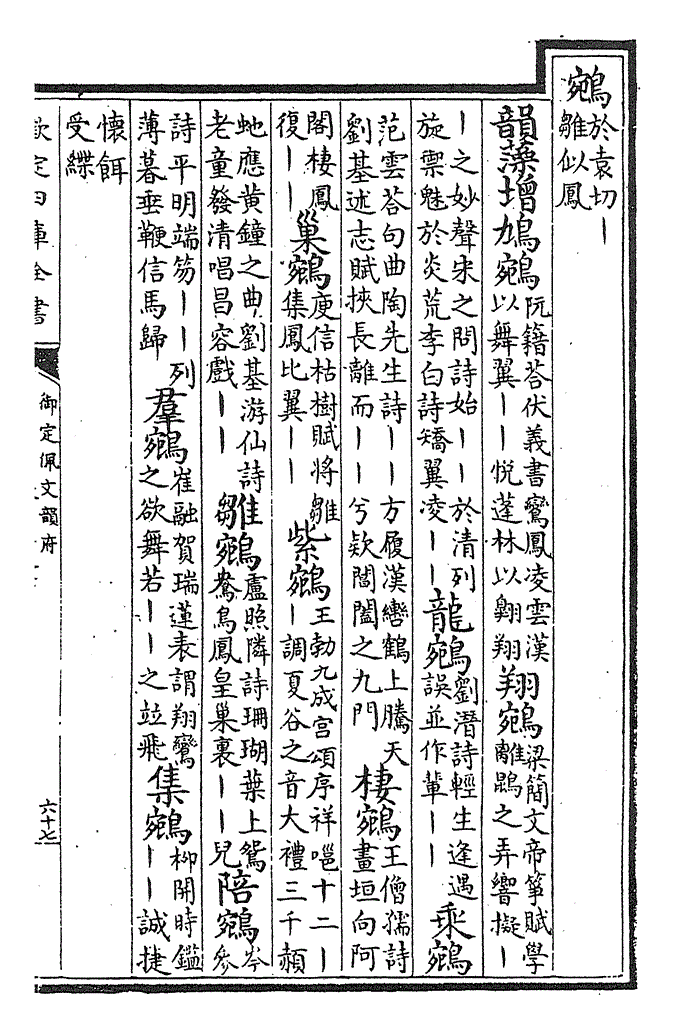 鵷於袁切丨雛似鳳
韻藻增鳩鵷阮籍荅伏義書鸞鳳凌雲漢以舞翼丨丨悅蓬林以翺翔翔鵷梁簡文帝箏賦學離鵾之弄響擬丨
丨之妙聲宋之問詩始丨丨於清列旋禦魅於炎荒李白詩矯翼凌丨丨龍鵷劉潛詩輕生逢遇誤並作輩丨丨乘鵷
范雲荅句曲陶先生詩丨丨方履漢轡鶴上騰天劉基述志賦挾長離而丨丨兮欵閶闔之九門棲鵷王僧孺詩畫垣向阿
閣棲鳳復丨丨巢鵷庾信枯樹賦將雛集鳳比翼丨丨紫鵷王勃九成宮頌序祥嗈十二丨丨調夏谷之音大禮三千頳
虵應黃鐘之曲劉基游仙詩老童發清唱昌容戲丨丨雛鵷盧照隣詩珊瑚葉上鴛鴦鳥鳳皇巢裏丨丨兒陪鵷岑參
詩平明端笏丨丨列薄暮垂鞭信馬歸羣鵷崔融賀瑞蓮表謂翔鸞之欲舞若丨丨之竝飛集鵷柳開時鑑丨丨誠捷
懷餌受緤
欽定四庫全書
御定佩文韻府
六十七